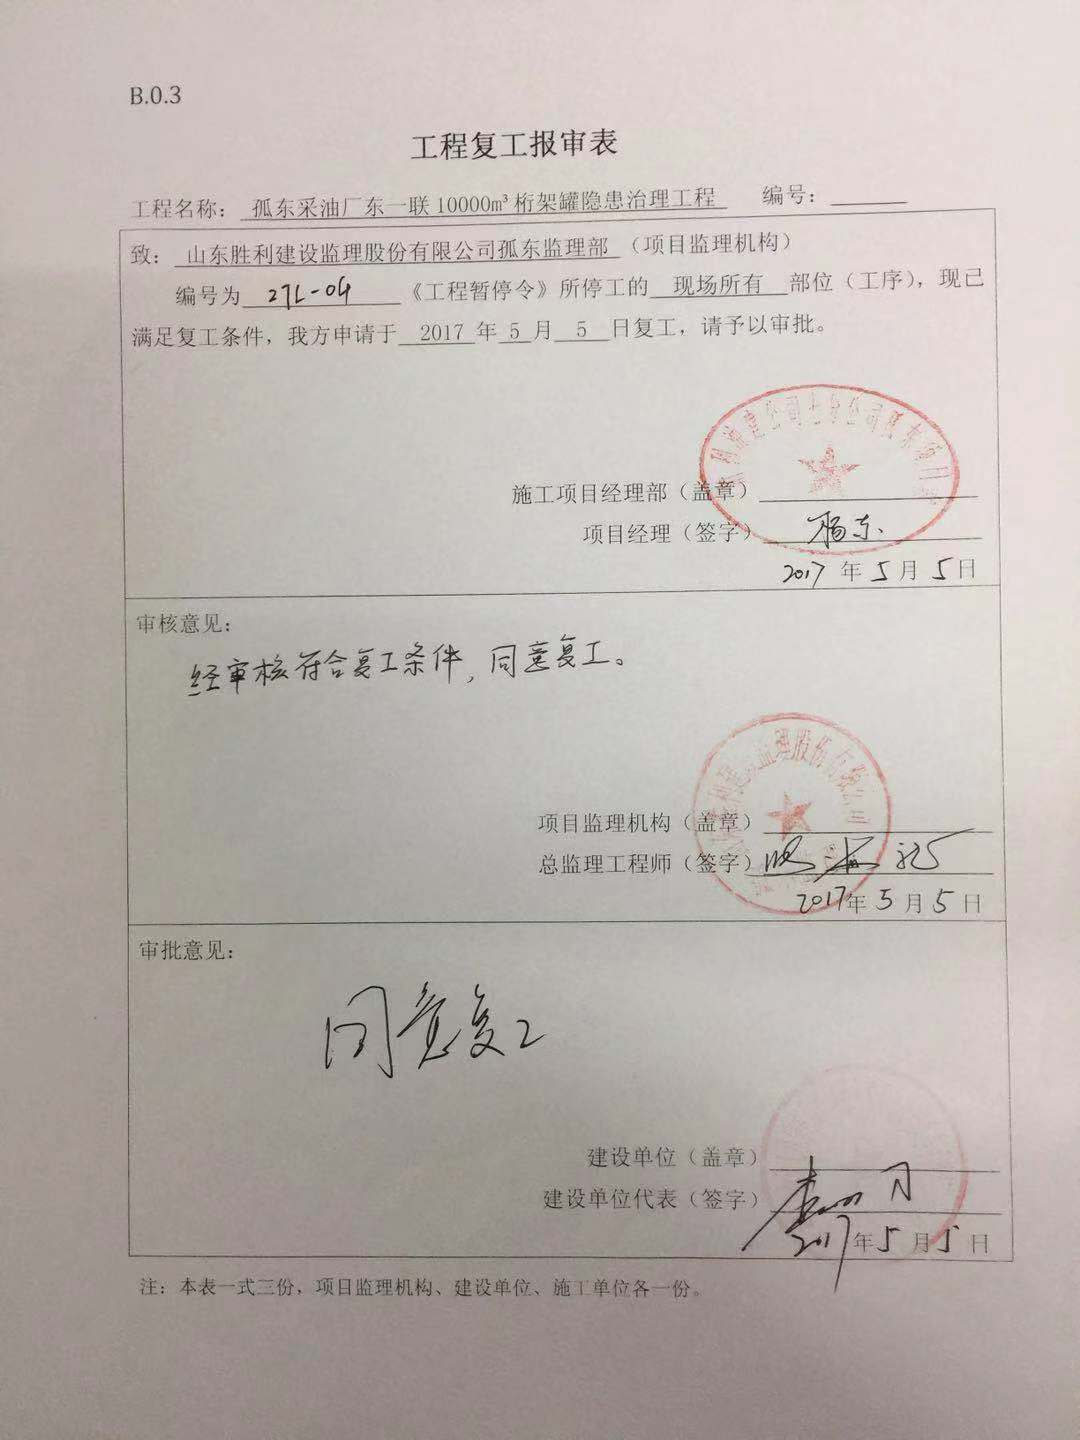 B.0.3
工程复工报审表
工程名称： 孤东采油厂东一联10000m³桁架罐隐患治理工程 编号：
致： 山东胜利建设监理股份有限公司孤东监理部 （项目监理机构）
编号为 27L-04 《工程暂停令》所停工的 现场所有 部位（工序），现已
满足复工条件，我方申请于 2017 年 5 月 5 日复工，请予以审批。
施工项目经理部（盖章）
项目经理（签字） 杨东
2017 年 5 月 5 日
审核意见：
经审核符合复工条件，同意复工。
监理股份有限公司
项目监理机构（盖章）
总监理工程师（签字）
2017年 5 月 5 日
审批意见：
同意复工
建设单位（盖章）
建设单位代表（签字）
2017年 5 月 5 日
注：本表一式三份，项目监理机构、建设单位、施工单位各一份。